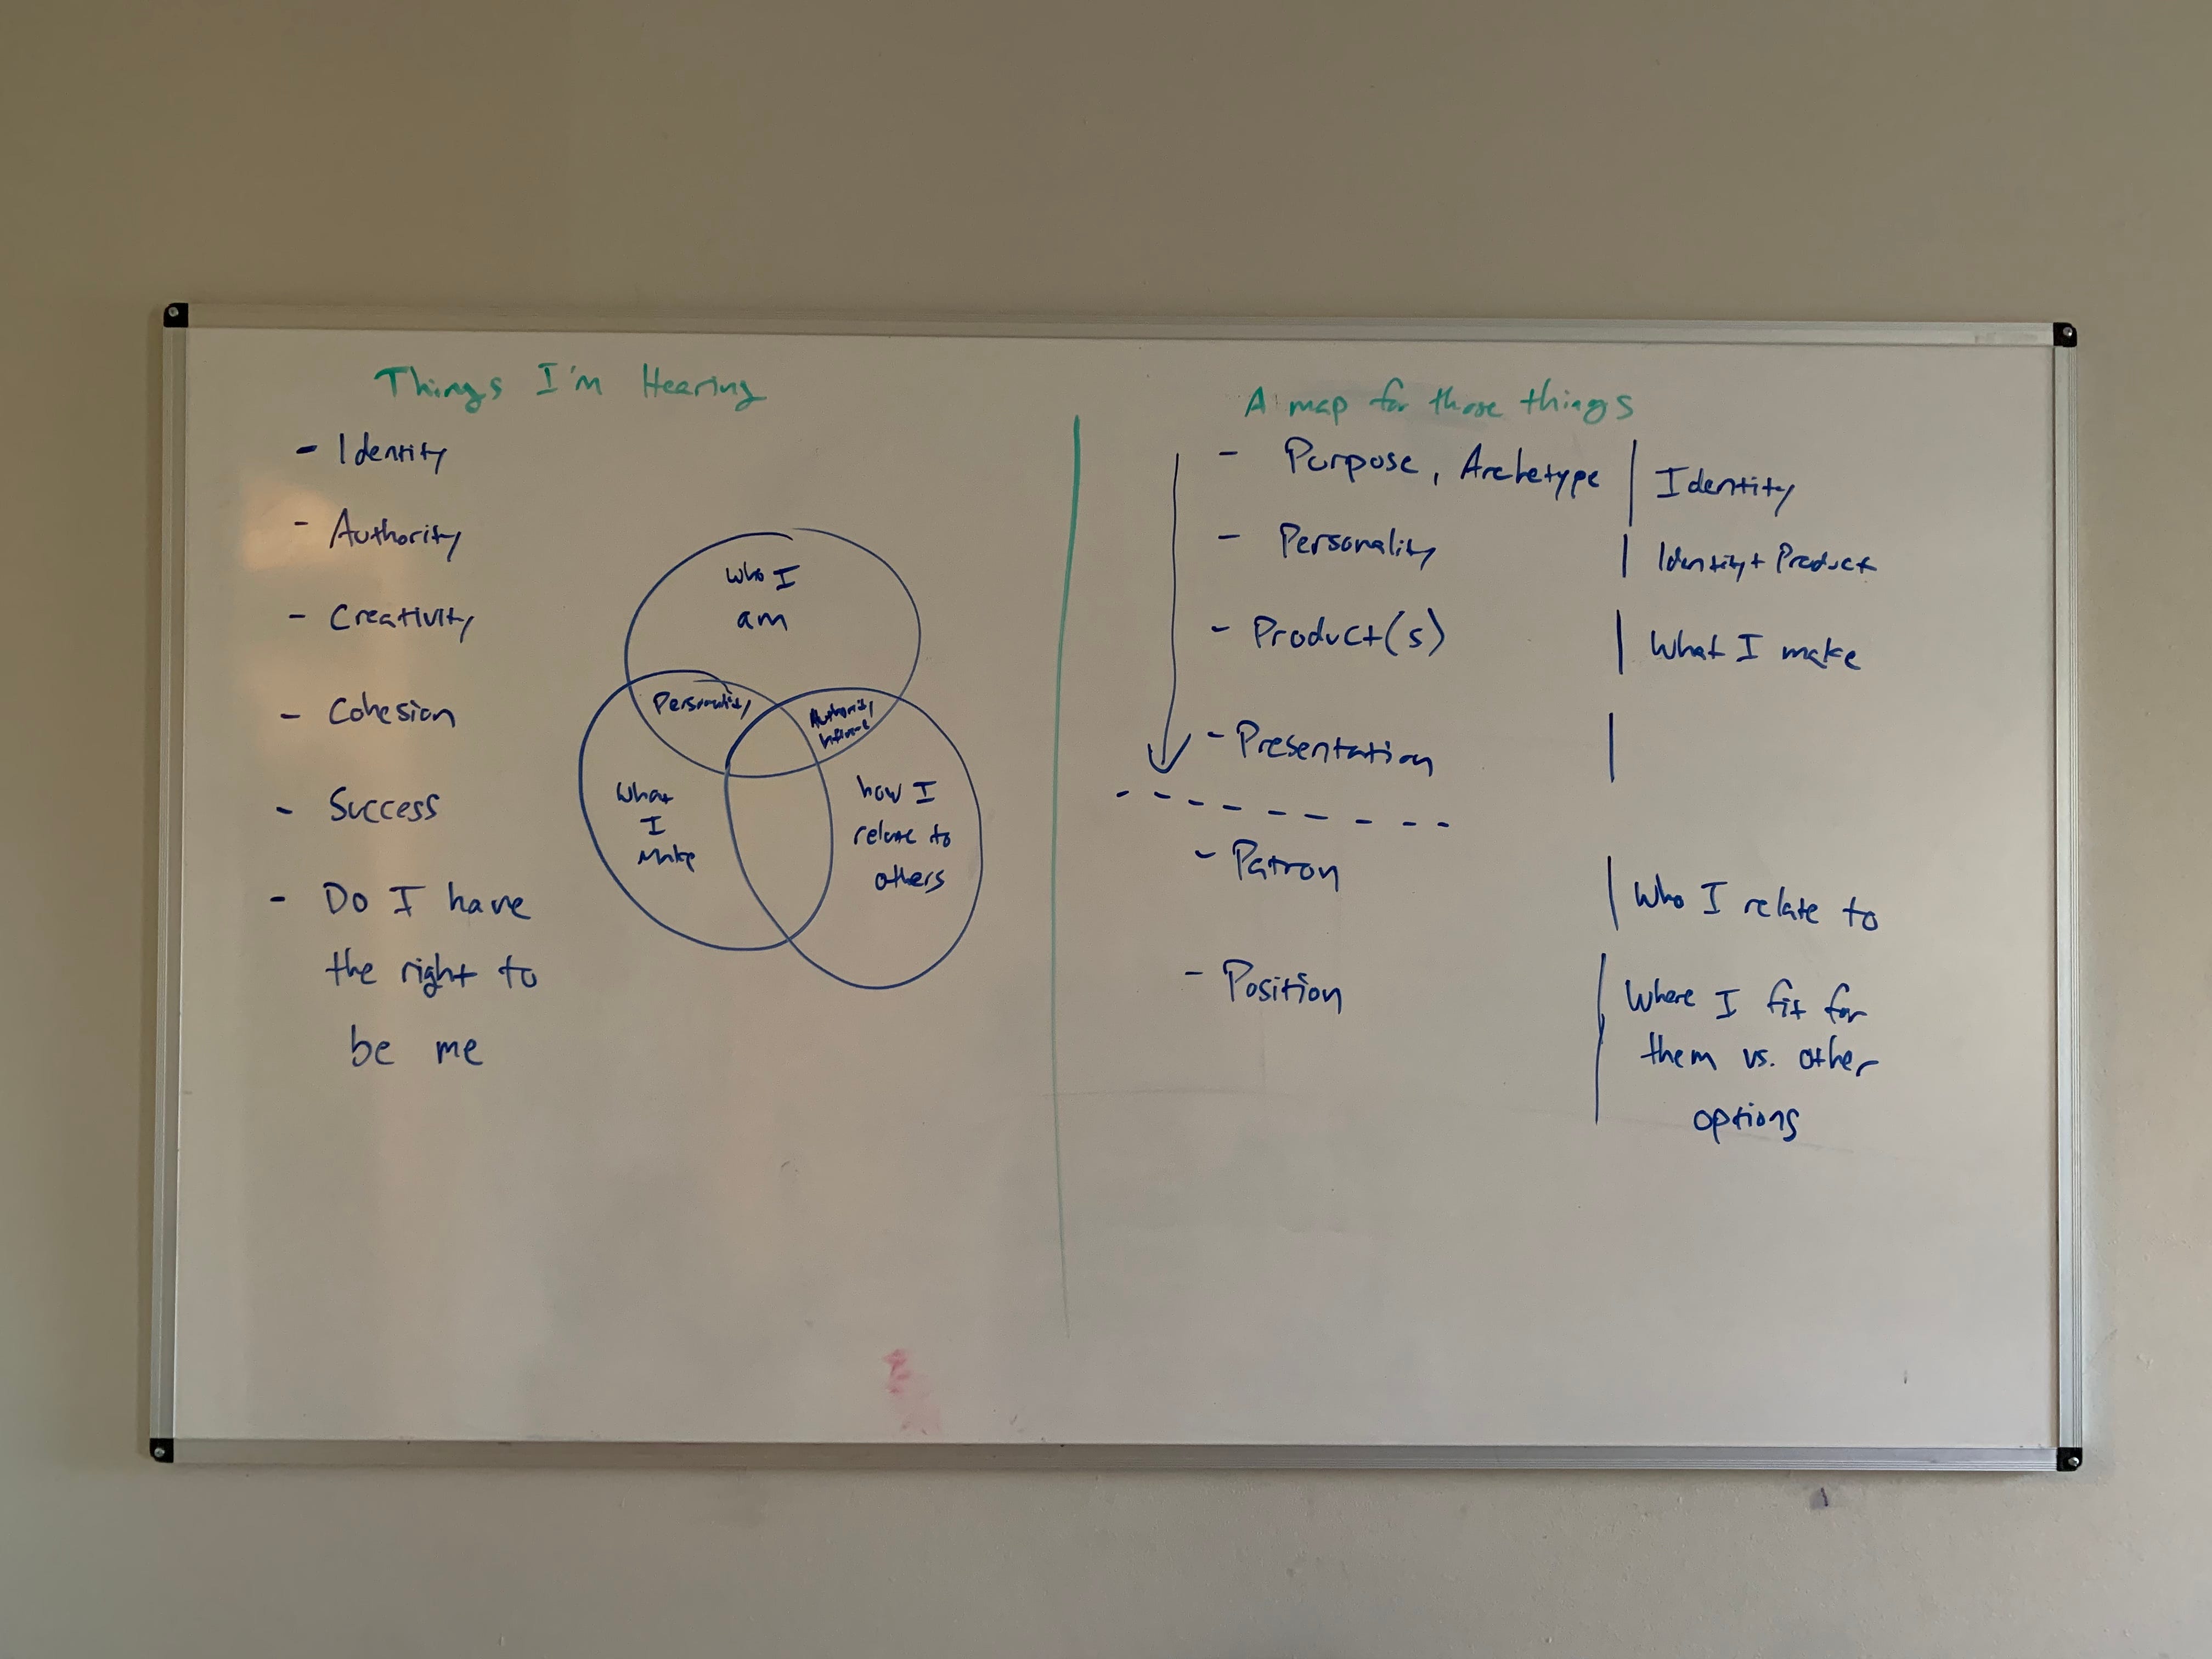 Things I'm Hearing
- Identity
- Authority
- Creativity
- Cohesion
- Success
- Do I have
the right to
be me
Who I
am
Personality
Authority
Influence
What
I
Make
how I
relate to
others
A map for those things
- Purpose, Archetype | Identity
- Personality | Identity + Product
- Product(s) | What I make
- Presentation |
- Patron | Who I relate to
- Position | Where I fit for
them vs. other
options